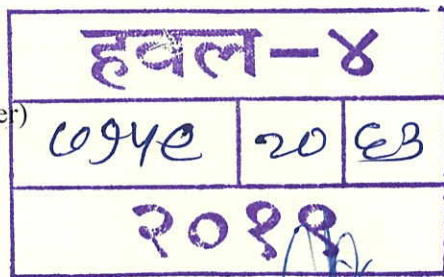 हवल-४
er) ७१५९ २० ६३
२०११